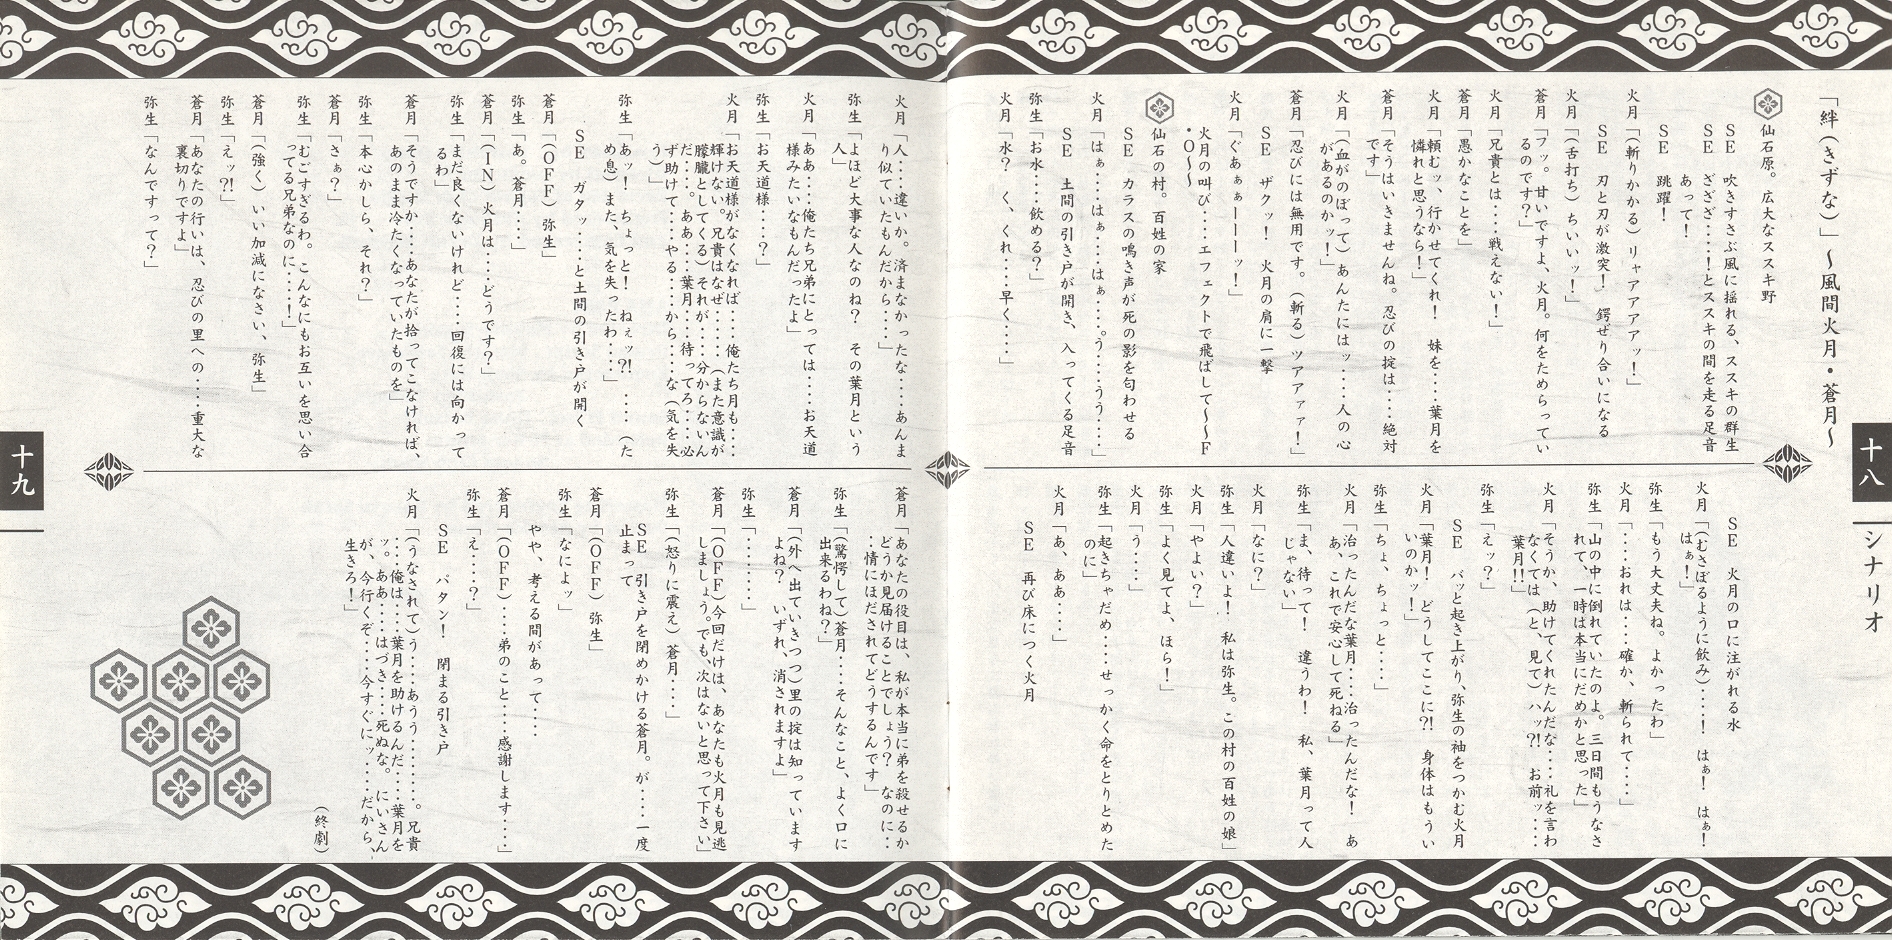 十八
シナリオ
「絆（きずな）」～風間火月・蒼月～
仙石原。広大なススキ野
SE　吹きすさぶ風に揺れる、ススキの群生
SE　ざざざ‥‥！とススキの間を走る足音
あって！
SE　跳躍！
火月「（斬りかかる）リャアアアアッ！」
SE　刃と刃が激突！　鍔ぜり合いになる
火月「（舌打ち）ちいいッ！」
蒼月「フッ。甘いですよ、火月。何をためらってい
るのです？」
火月「兄貴とは‥‥戦えない！」
蒼月「愚かなことを」
火月「頼むッ、行かせてくれ！　妹を‥‥葉月を
憐れと思うなら！」
蒼月「そうはいきませんね。忍びの掟は‥‥絶対
です」
火月「（血がのぼって）あんたにはッ‥‥人の心
があるのかッ！」
蒼月「忍びには無用です。（斬る）ツアアァァ！」
SE　ザクッ！　火月の肩に一撃
火月「ぐあぁぁーーーーッ！」
火月の叫び‥‥エフェクトで飛ばして～～F
・O～～
仙石の村。百姓の家
SE　カラスの鳴き声が死の影を匂わせる
火月「はぁ‥‥はぁ‥‥はぁ‥‥。う‥‥うう‥‥」
SE　土間の引き戸が開き、入ってくる足音
弥生「お水‥‥飲める？」
火月「水？　く、くれ‥‥早く‥‥」
SE　火月の口に注がれる水
火月「（むさぼるように飲み）‥‥！　はぁ！　はぁ！
はぁ！」
弥生「もう大丈夫ね。よかったわ」
火月「‥‥おれは‥‥確か、斬られて‥‥」
弥生「山の中に倒れていたのよ。三日間もうなさ
れて、一時は本当にだめかと思った」
火月「そうか、助けてくれたんだな‥‥礼を言わ
なくては（と、見て）ハッ?!　お前ッ‥‥
葉月!!」
弥生「えッ？」
SE　バッと起き上がり、弥生の袖をつかむ火月
火月「葉月！　どうしてここに?!　身体はもうい
いのかッ！」
弥生「ちょ、ちょっと‥‥」
火月「治ったんだな葉月‥‥治ったんだな！　あ
あ、これで安心して死ねる」
弥生「ま、待って！　違うわ！　私、葉月って人
じゃない」
火月「なに？」
弥生「人違いよ！　私は弥生。この村の百姓の娘」
火月「やよい？」
弥生「よく見てよ、ほら！」
火月「う‥‥」
弥生「起きちゃだめ‥‥せっかく命をとりとめた
のに」
火月「あ、ああ‥‥」
SE　再び床につく火月
火月「人‥‥違いか。済まなかったな‥‥あんま
り似ていたもんだから‥‥」
弥生「よほど大事な人なのね？　その葉月という
人」
火月「ああ‥‥俺たち兄弟にとっては‥‥お天道
様みたいなもんだったよ」
弥生「お天道様‥‥？」
火月「お天道様がなくなれば‥‥俺たち月も‥‥
輝けない。兄貴はなぜ‥‥（また意識が
朦朧としてくる）それが‥‥分からないん
だ‥‥。ああ‥‥葉月‥‥待ってろ‥‥必
ず助けて‥‥やる‥‥から‥‥な（気を失
う）」
弥生「あッ！　ちょっと！　ねぇッ?!　‥‥（た
め息）また、気を失ったわ‥‥」
SE　ガタッ‥‥と土間の引き戸が開く
蒼月「（OFF）弥生」
弥生「あ。蒼月‥‥」
蒼月「（IN）火月は‥‥どうです？」
弥生「まだ良くないけれど‥‥回復には向かって
るわ」
蒼月「そうですか‥‥あなたが拾ってこなければ、
あのまま冷たくなっていたものを」
弥生「本心かしら、それ？」
蒼月「さぁ？」
弥生「むごすぎるわ。こんなにもお互いを思い合
ってる兄弟なのに‥‥！」
蒼月「（強く）いい加減になさい、弥生」
弥生「えッ?!」
蒼月「あなたの行いは、忍びの里への‥‥重大な
裏切りですよ」
弥生「なんですって？」
蒼月「あなたの役目は、私が本当に弟を殺せるか
どうか見届けることでしょう？　なのに‥
‥情にほだされてどうするんです」
弥生「（驚愕して）蒼月‥‥そんなこと、よく口に
出来るわね？」
蒼月「（外へ出ていきつつ）里の掟は知っています
よね？　いずれ、消されますよ」
弥生「‥‥‥‥」
蒼月「（OFF）今回だけは、あなたも火月も見逃
しましょう。でも、次はないと思って下さい」
弥生「（怒りに震え）蒼月‥‥」
SE　引き戸を閉めかける蒼月。が‥‥一度
止まって
蒼月「（OFF）弥生」
弥生「なによッ」
やや、考える間があって‥‥
蒼月「（OFF）‥‥弟のこと‥‥感謝します‥‥」
弥生「え‥‥？」
SE　バタン！　閉まる引き戸
火月「（うなされて）う‥‥あうう‥‥‥‥。兄貴
‥‥俺は‥‥葉月を助けるんだ‥‥葉月を
ッ。ああ‥‥はづき‥‥死ぬな。にいさん
が、今行くぞ‥‥今すぐにッ‥‥だから、
生きろ！」
（終劇）
十九